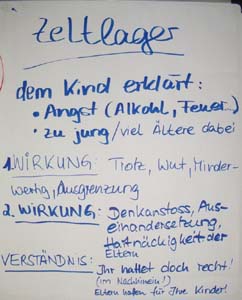 Zeltlager
dem Kind erklärt:
• Angst (Alkohol, Feuer)
• zu jung / viel Ältere dabei
1. WIRKUNG: Trotz, Wut, Minder-
wertig, Ausgrenzung
2. WIRKUNG: Denkanstoss, Aus-
einandersetzung,
Hartnäckigkeit der
Eltern
VERSTÄNDNIS: Ihr hattet doch recht!
(im Nachhinein!)
Eltern haften für Ihre Kinder!